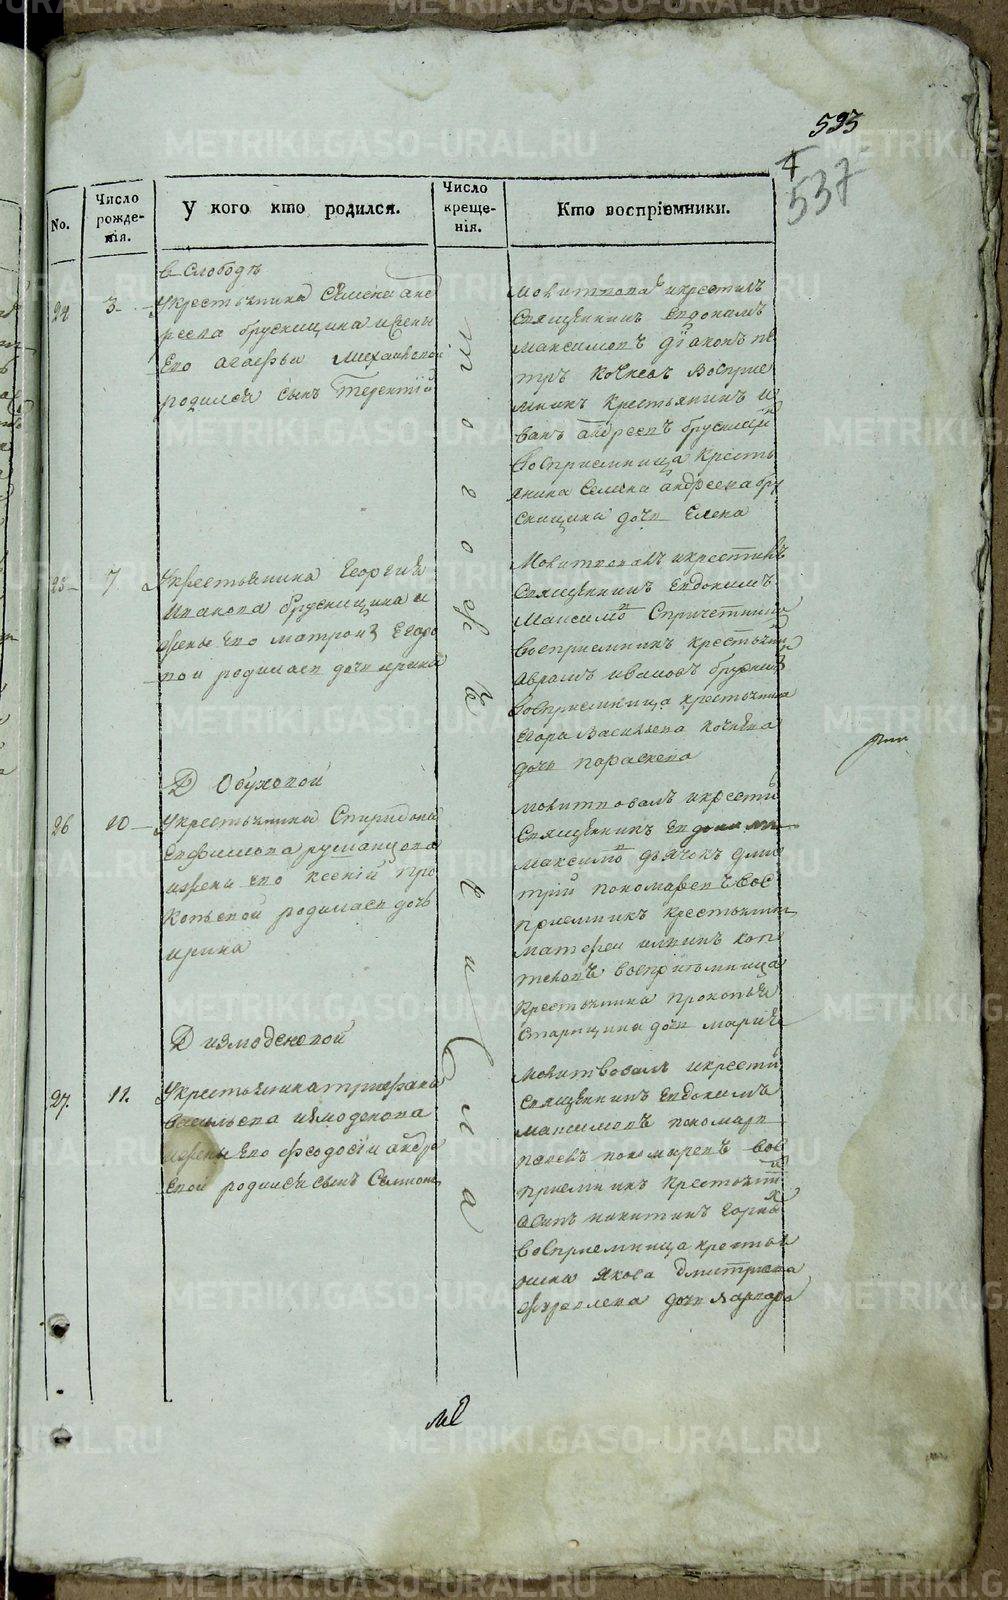 593
4
537
No.
Число рожде-нія.
У кого кто родился.
Число креще-нія.
Кто воспріемники.
в Слободѣ
24
3
Укрестьянина Семена анд
реева брусницина ижены
Его агафьи Михаиловой
родился сынъ Терентій
Молитвовалъ икрестилъ
Священникъ Евдокимъ
Максимовъ діаконъ пе
тръ кочневъ Восприе
мникъ крестьянинъ и
ванъ андреевъ брусницин
восприемница кресть
янина Семена андреева бру
сницина дочь Елена
25
7
Укрестьянина Георгия
иванова брусницина и
жены Его матроны Егоро
вой родилась дочь ирина
Молитвовалъ икрестилъ
Священникъ Евдокимъ
Максимов Спричетники
восприемникъ крестьянин
аврамъ ивановъ брусниц
восприемница крестьянина
Егора Васильева кочнева
дочь параскева
Д Обуховой
26
10
Укрестьянина Спиридона
Ефимова русанцова
ижены Его ксеніи про
копьевой родилась дочь
ирина
молитвовалъ икрести
Священникъ Евдоким
Максимов дьячекъ дми
трій пономаревъ Вос
приемникъ крестьянин
матфеи
восприемница
крестьянина прокопья
Старицина дочь мария
Д измоденовой
27.
11.
Укрестьянина трифана
Васильева измоденова
ижены Его феодосіи андре
евой родился сынъ Симион
Молитвовалъ икрести
Священникъ Евдокимъ
Максимовъ пономарь
пономаревъ вос
приемникъ крестьянин
никитинъ
восприемница крестья
нина Якова дмитриева
дочь варвара
тогоже числа
METRIKI.GASO-URAL.RU